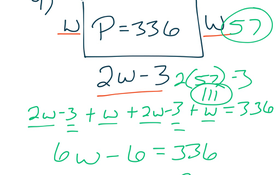 w P = 336 w 57
2w-3 2(57)-3
111
2w-3 + w + 2w-3 + w = 336
6w - 6 = 336